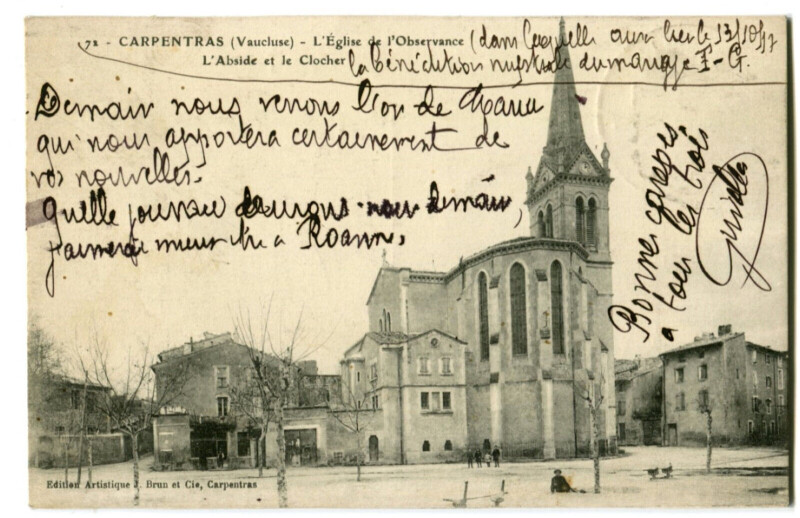 72 - CARPENTRAS (Vaucluse) - L'Église de l'Observance
L'Abside et le Clocher
(dans laquelle aura lieu le 13/10/17
la bénédiction nuptiale du mariage I-G.
Demain nous venons de Maria
qui nous apportera certainement de
vos nouvelles.
Quelle journée aurons nous demain,
j'aimerais mieux être a Roanne.
Bonnes
a tous les trois
Edition Artistique J. Brun et Cie, Carpentras